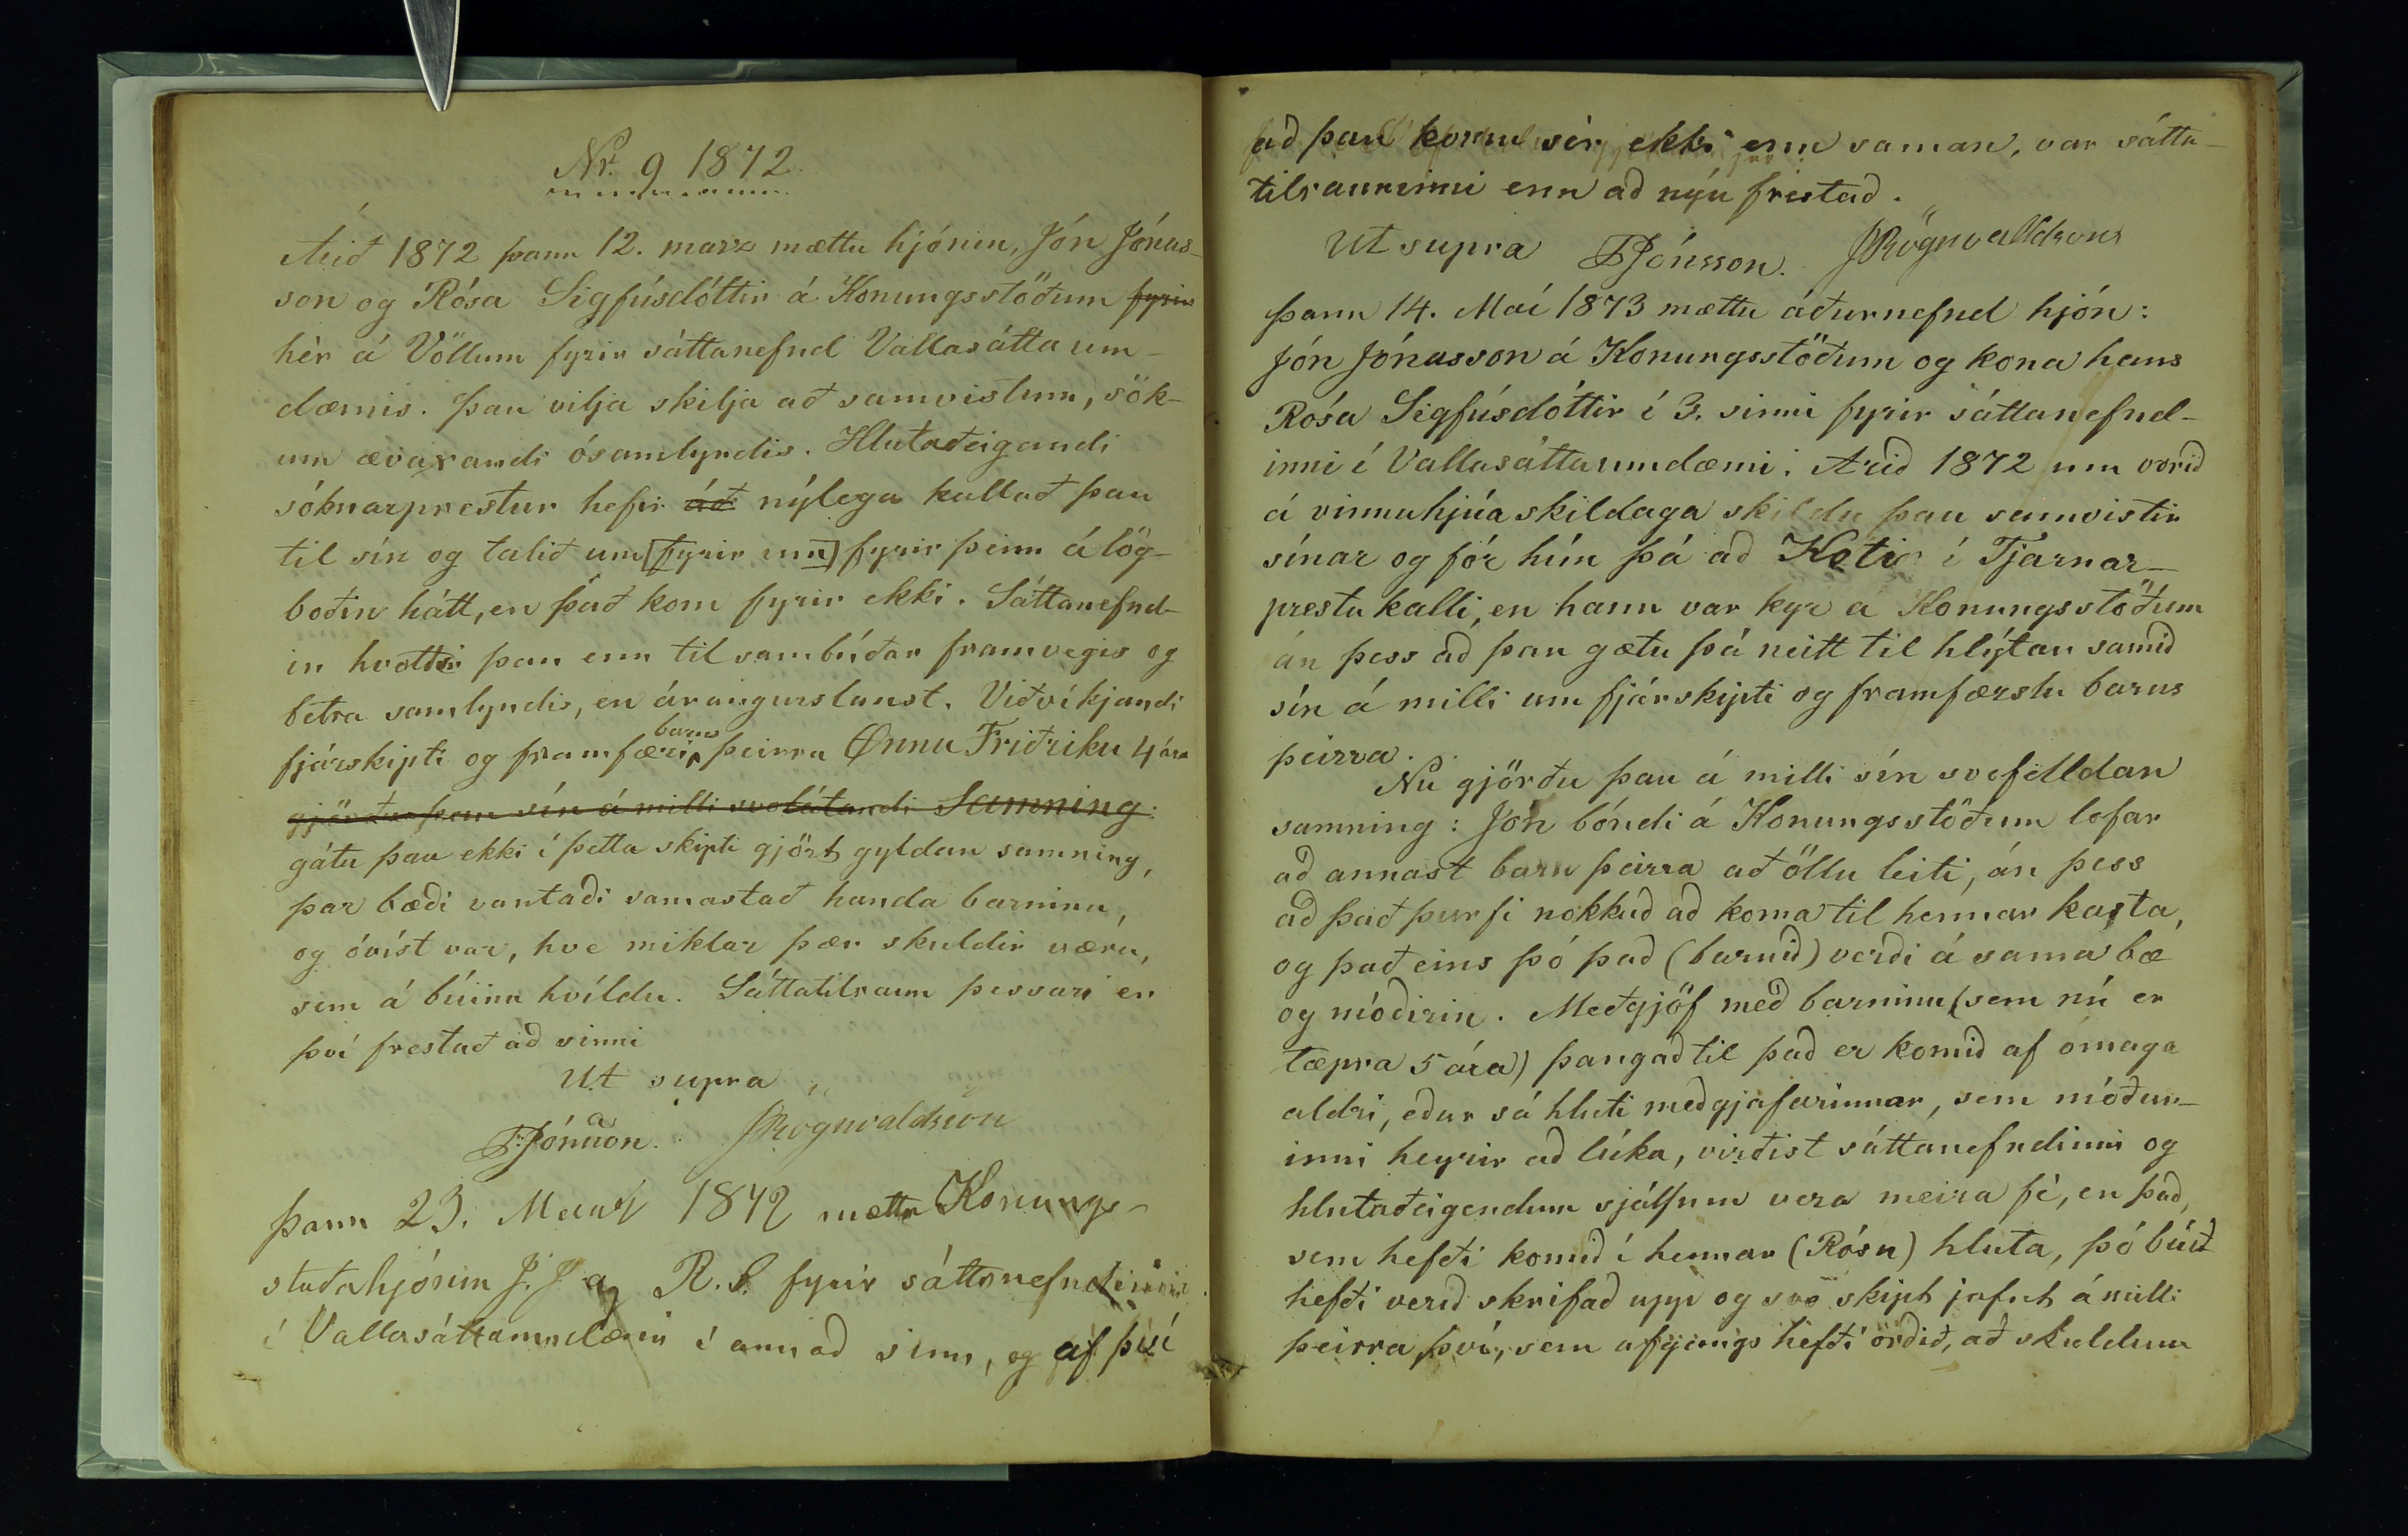 Nr. 9 1872
Árið 1872 þann 12. marz mættu hjónin, Jón Jónas-
son og Rósa Sigfúsdóttir á Konungsstöðum fyrir
hèr á Völlum fyrir sáttanefnd Vallasáttaum-
dæmis. Þau vilja skilja að samvistum, sök-
um ævaxandi ósamlyndis. Hlutaðeigandi
sóknarprestur hefir áð nýlega kallað þau
til sín og talið um [fyrir um] fyrir þeim á lög-
boðin hátt, en það kom fyrir ekki. Sáttanefnd-
in hvatti þau enn til sambúðar framvegis og
betra samlyndis, en árangurslaust. Viðvíkjandi
fjárskipti og framfæri barns þeirra Önnu Friðriku 4 ára
gjörðu þau sín á milli svolátandi Samning:
gátu þau ekki í þetta skipti gjört gyldan samning,
þar bæði vantaði samastað handa barninu,
og óvíst var, hve miklar þær skuldir væru,
sem á búinu hvíldu. Sáttatilraun þessari er
því frestað að sinni
Ut supra
BJónsson. JRögnvaldsson
Þann 23. 1872 mættu Konungs-
staðahjónin J. J. og R. S. fyrir sáttanefndinni
í Vallasáttaumdæmi í annað sinn, og af því
að þau komu sér ekki enn saman, var sátta-
tilrauninni enn að nýu frestað.
Ut supra BJónsson. JRögnvaldsson
Þann 14. Maí 1873 mættu áðurnefnd hjón:
Jón Jónasson á Konungsstöðum og kona hans
Rósa Sigfúsdóttir í 3. sinni fyrir sáttanefnd-
inni í Vallasáttaumdæmi. Árið 1872 um vorið
á vinnuhjúaskildaga skildu þau samvistir
sínar og fór hún þá að Koti í Tjarnar-
prestakalli, en hann var kyr á Konungsstöðum
án þess að þau gætu þá neitt til hlýtar samið
sín á milli um fjárskipti og framfærslu barns
þeirra.
Nú gjörðu þau á milli sín svofelldan
samning: Jón bóndi á Konungsstöðum lofar
að annast barn þeirra að öllu leiti, án þess
að það þurfi nokkuð að koma til hennar kasta,
og það eins þó það (barnið) verði á sama bæ
og móðirin. Meðgjöf með barninu (sem nú er
tæpra 5 ára) þangað til það er komið af ómaga
aldri, eður sá hluti meðgjafarinnar, sem móður-
inni heyrir að lúka, virðist sáttanefndinni og
hlutaðeigendum sjálfum vera meira fè, en það,
sem hefði komið í hennar (Rósu) hluta, þó búið
hefði verið skrifað upp og svo skipt jafnt á milli
þeirra því, sem afgangs hefði orðið, að skuldum